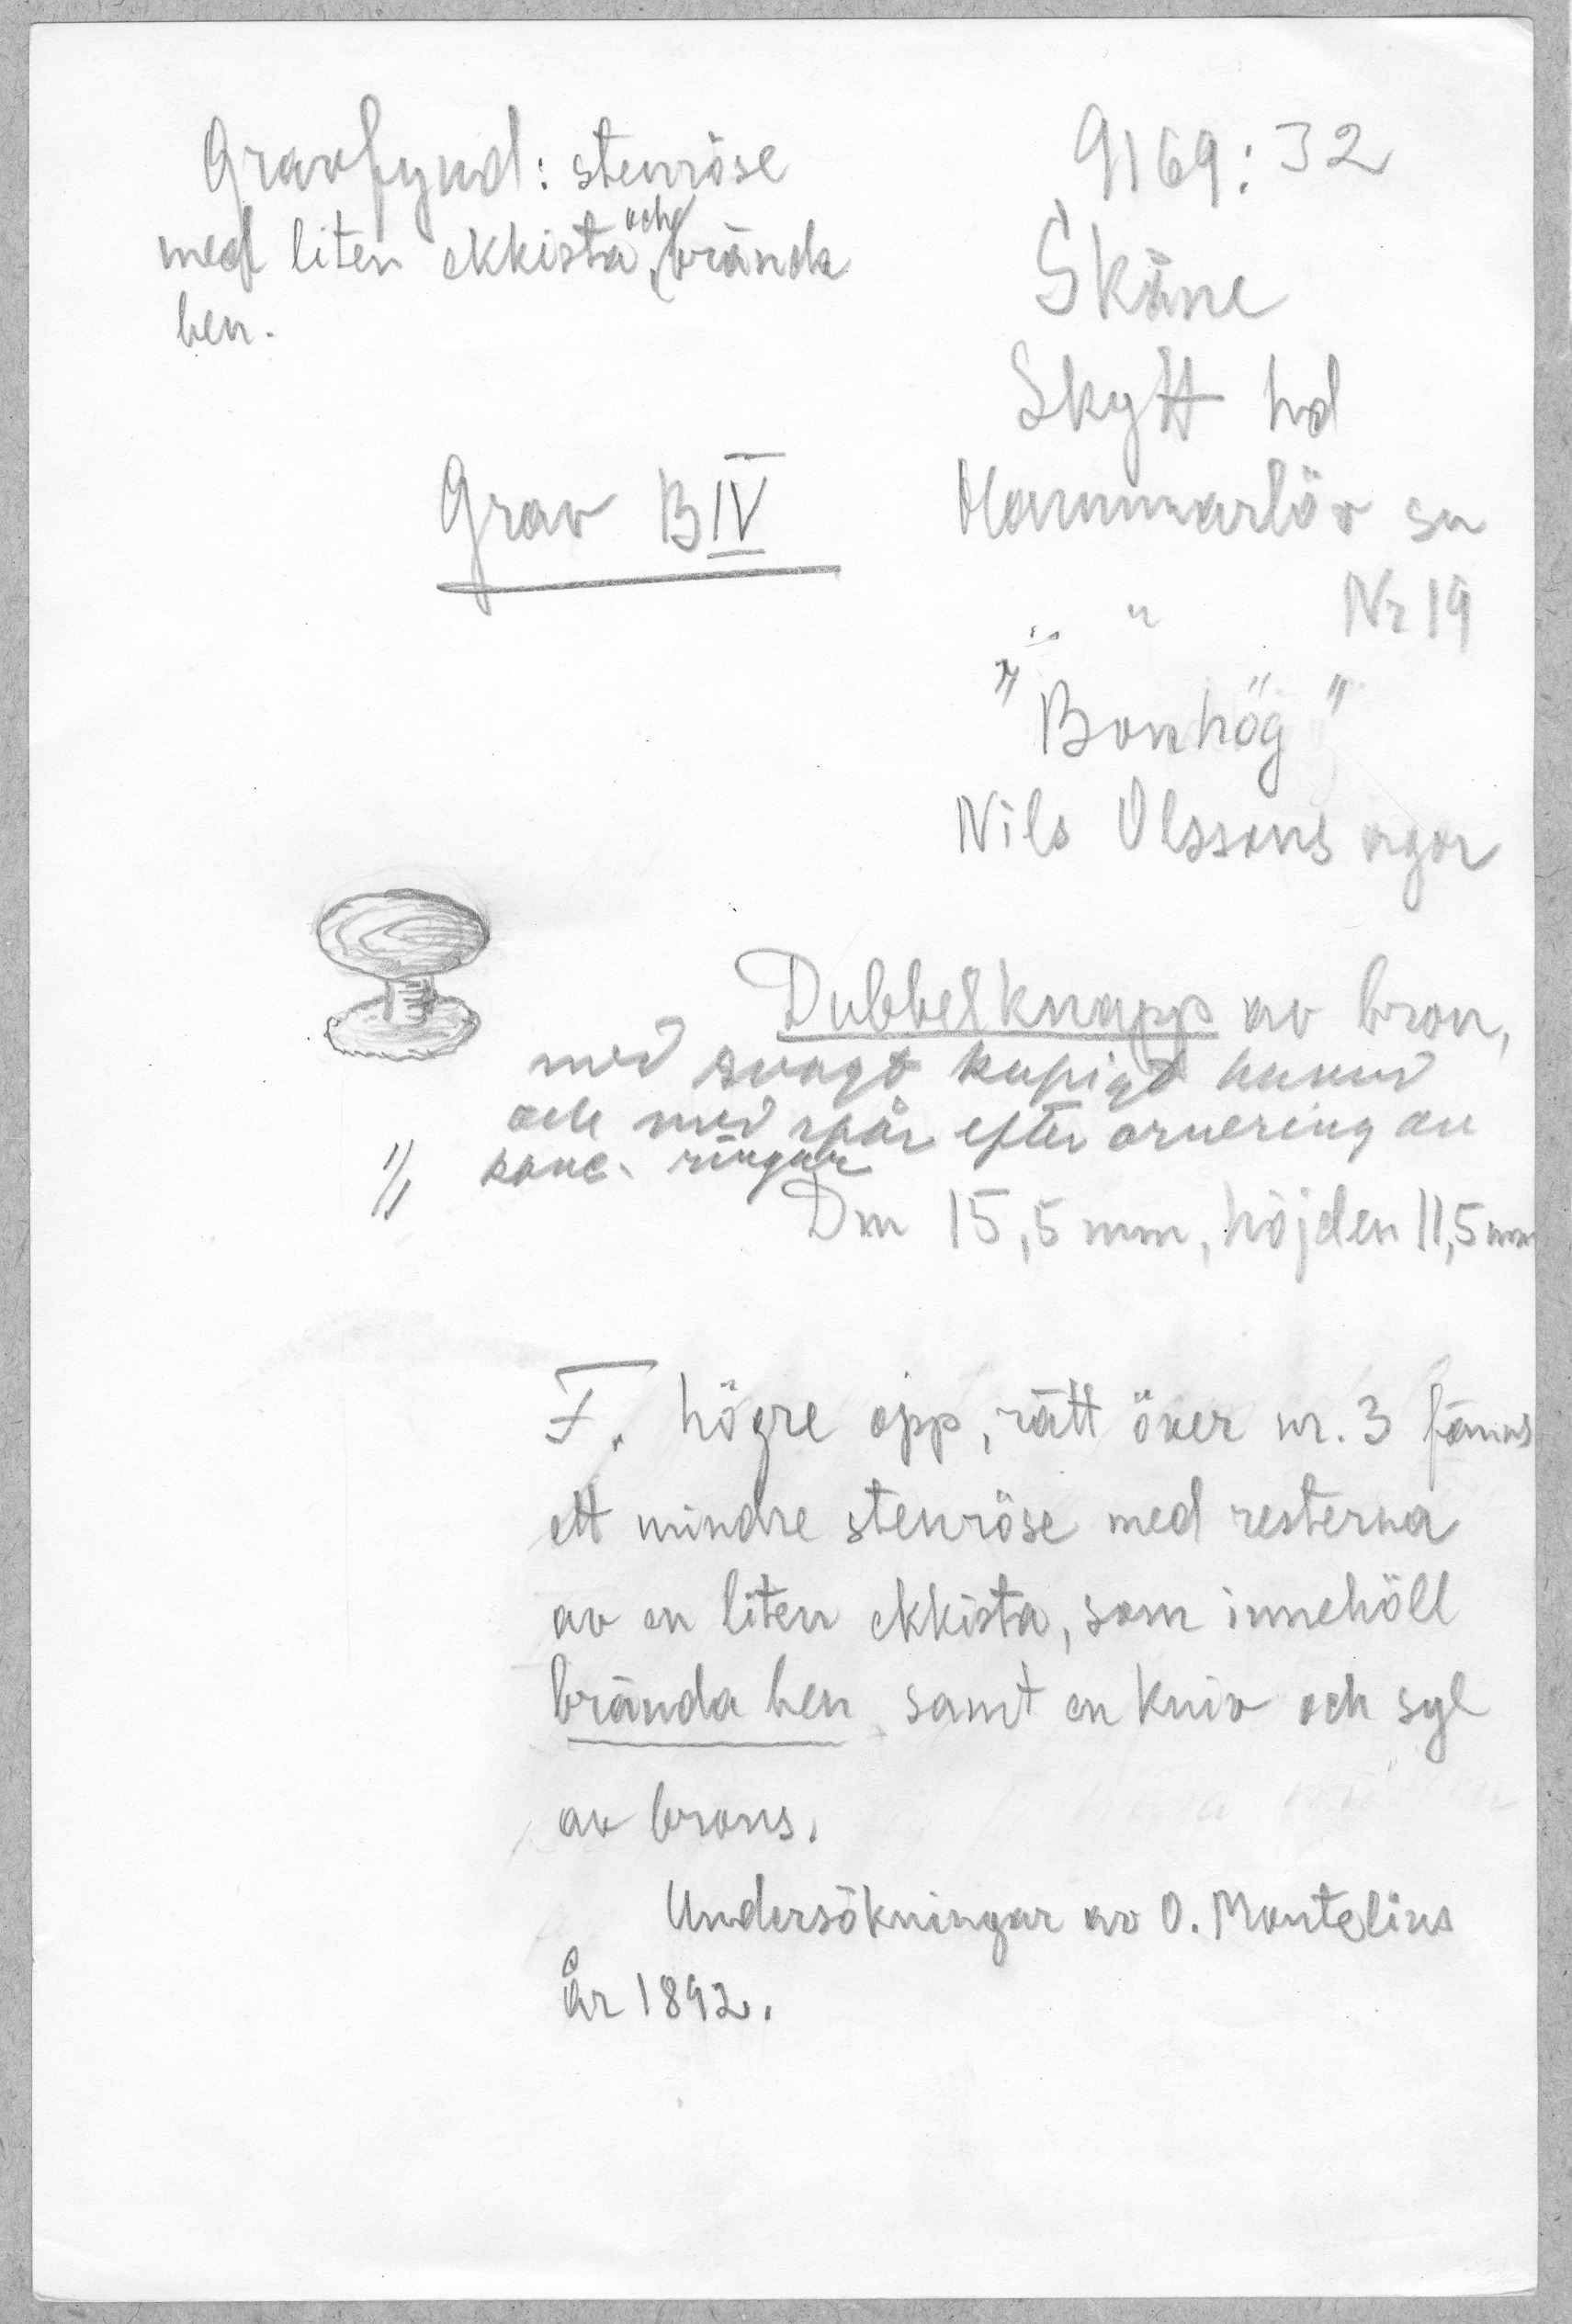 Gravfynd: stenröse
med liten ekkista och brända
ben.
9169:32
Skåne
Skytt hd
Hammarlöv sn
" " Nr 19
"Bonhög"
Nils Olssons ägor
Grav B IV
Dubbelknapp av bron,
med svagt kupigt huvud
och med spår efter ornering av
konc. ringar
1/1
Dm 15,5 mm, höjden 11,5 mm
F. högre opp, rätt över nr. 3 fanns
ett mindre stenröse med resterna
av en liten ekkista, som innehöll
brända ben samt en kniv och syl
av brons.
Undersökningar av O. Montelius
år 1892.